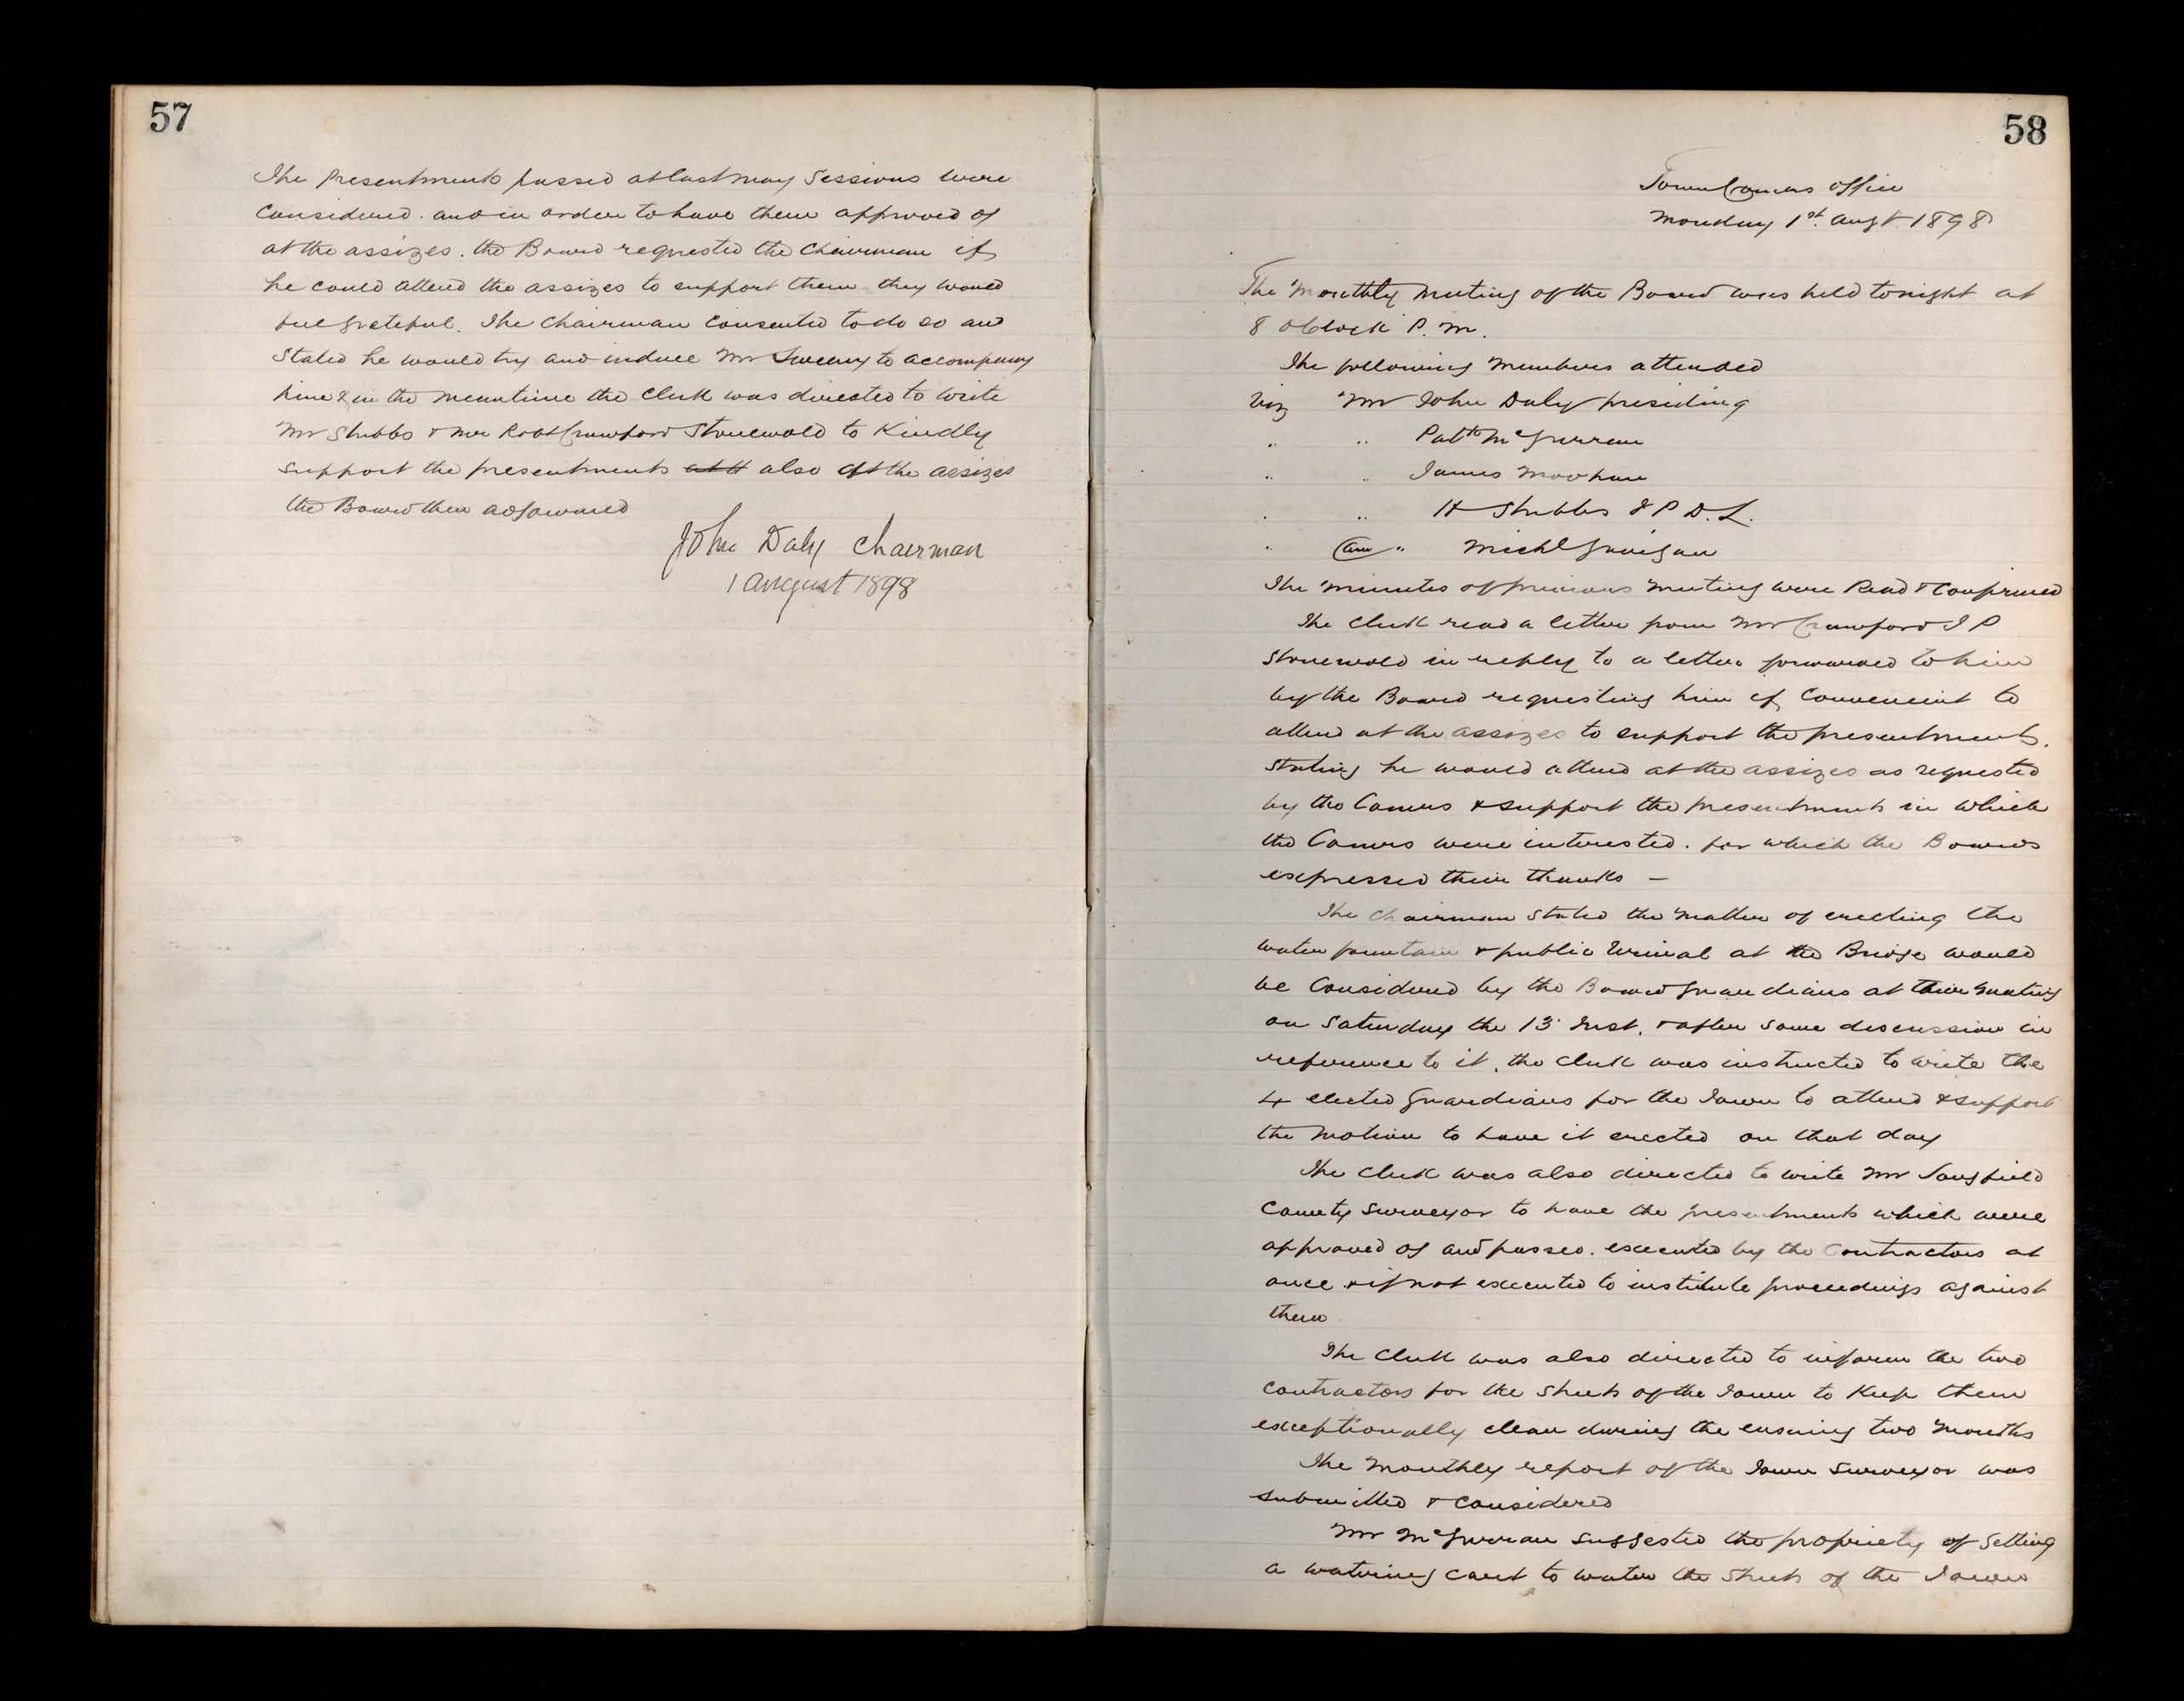 57
The presentments passed at last may Sessions were
considered. and in order to have them approved of
at the assizes. the Board requested the Chairman if
he could attend the assizes to support them they would
feel grateful. The Chairman consented to do so and
stated he would try and induce Mr Sweeny to accompany
him & in the meantime the Clerk was directed to write
Mr Stubbs & Mr Robt Crawford Stonewold to Kindly
support the presentments at tt also at the assizes
the Board then adjourned
John Daly Chairman
1 August 1898
58
Town Comrs office
Monday 1st. Augt 1898
The Monthly Meeting of the Board was held tonight at
8 oClock P.M.
The following Members attended
Viz Mr John Daly presiding
" " Patt McGurran
" " James Moohan
" " H Stubbs J P D.L.
" and " Michl
The Minutes of previous Meeting were Read & Confirmed
The Clerk read a letter from Mr Crawford J P
Stonewold in reply to a letter forwarded to him
by the Board requesting him if Convenient to
attend at the assizes to support the presentments.
Stating he would attend at the assizes as requested
by the Comrs & support the presentments in which
the Comrs were interested. for which the Boards
expressed their thanks —
The Chairman stated the Matter of erecting the
water fountain & public Urinal at the Bridge would
be Considered by the Board Guardians at their Meeting
on Saturday the 13 Inst. & after some discussion in
reference to it, the Clerk was instructed to write the
4 elected Guardians for the Town to attend & support
the Motion to have it erected on that day
The Clerk was also directed to write Mr Langfield
County Surveyor to have the presentments which were
approved of and passed. executed by the Contractors at
once & if not executed to institute proceedings against
them
The Clerk was also directed to inform the two
contractors for the Streets of the Town to Keep them
exceptionally clean during the ensuing two Months
The Monthly report of the Town Surveyor was
submitted & considered
Mr McGurran suggested the propriety of Getting
a watering Cart to water the Streets of the Town